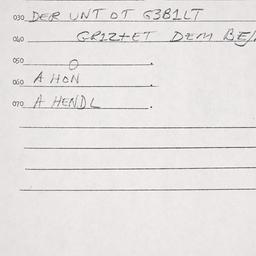 030 DER UNT OT G3B1LT
040 GR1Z+ET DEM BE
050 O .
060 A HON .
070 A HENDL .